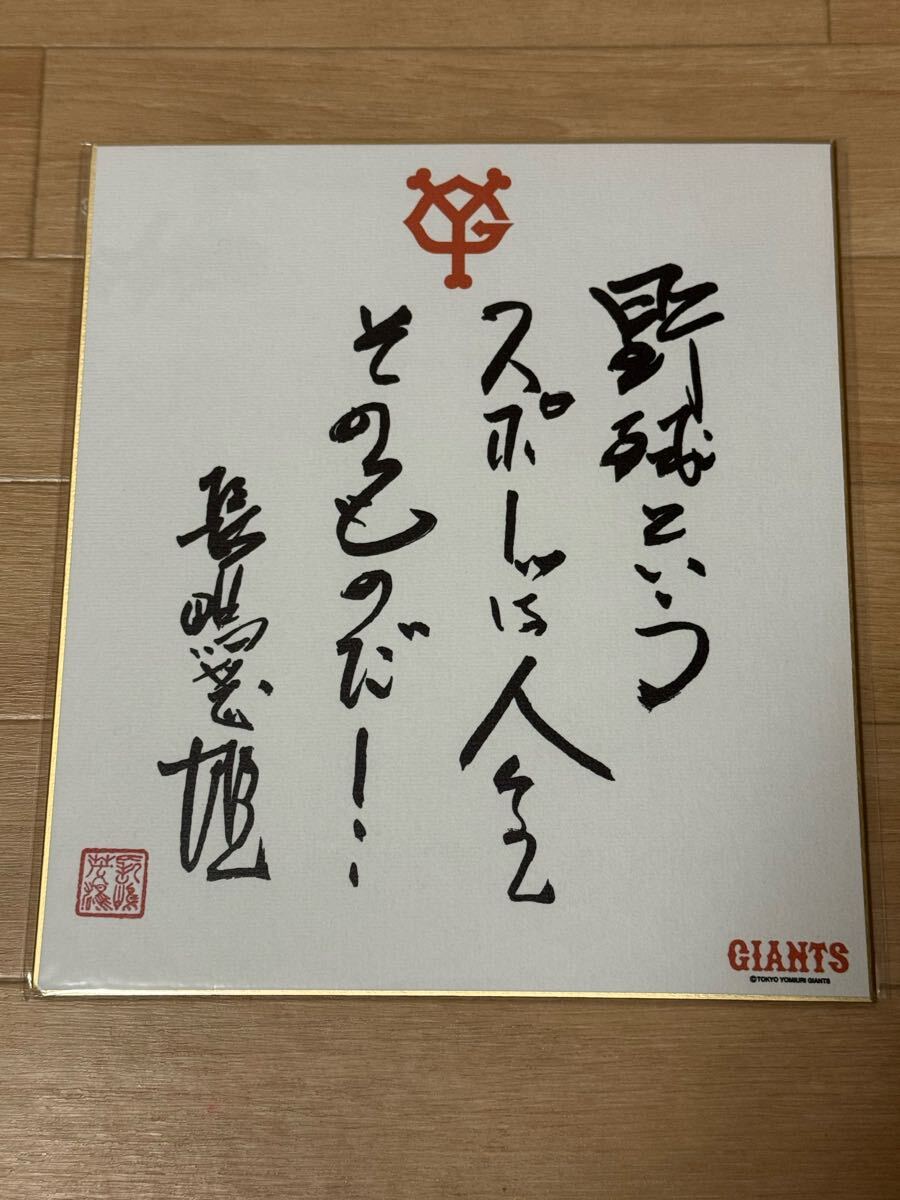 野球という
スポーツは人生
そのものだー…
長嶋茂雄
長嶋茂雄
GIANTS
©TOKYO YOMIURI GIANTS